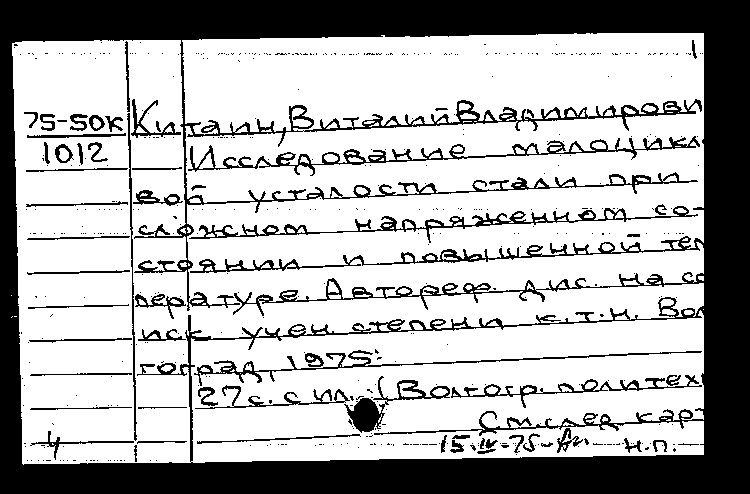 1
75-50К Китаин, Виталий Владимирови
1012 Исследование малоцикл
вой усталости стали при
сложном напряженном со-
стоянии и повышенной тем
пературе. Автореф. дис. на со
иск учен степени к.т.н. Вол
гоград, 1975.
27с. с ил. (Волгогр. политехн
См. след карт
4 15.IV-75-Ан. н.п.